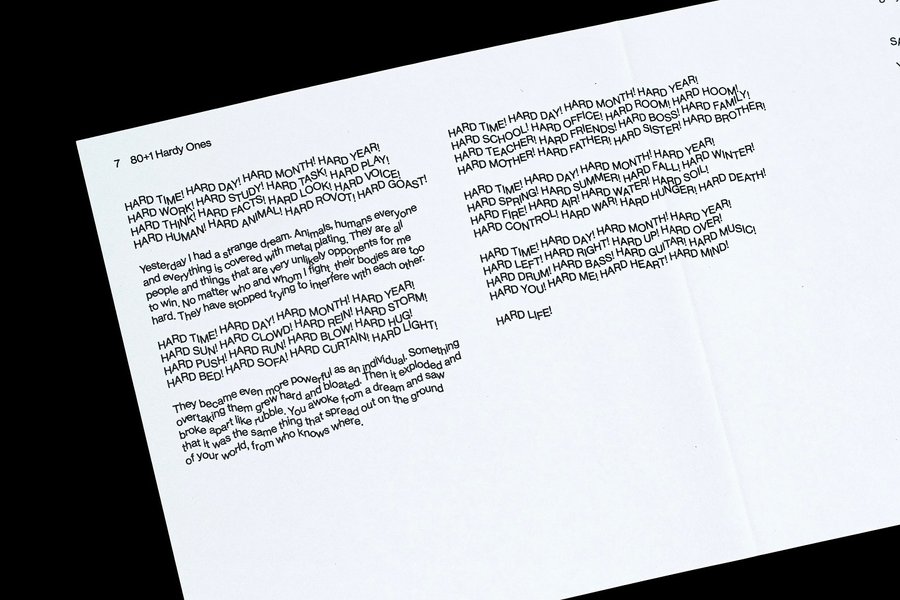 7 80+1 Hardy Ones
HARD TIME! HARD DAY! HARD MONTH! HARD YEAR!
HARD WORK! HARD STUDY! HARD TASK! HARD PLAY!
HARD THINK! HARD FACTS! HARD LOOK! HARD VOICE!
HARD HUMAN! HARD ANIMAL! HARD ROVOT! HARD GOAST!
Yesterday I had a strange dream. Animals, humans everyone
and everything is covered with metal plating. They are all
people and things that are very unlikely opponents for me
to win. No matter who and whom I fight, their bodies are too
hard. They have stopped trying to interfere with each other.
HARD TIME! HARD DAY! HARD MONTH! HARD YEAR!
HARD SUN! HARD CLOWD! HARD REIN! HARD STORM!
HARD PUSH! HARD RUN! HARD BLOW! HARD HUG!
HARD BED! HARD SOFA! HARD CURTAIN! HARD LIGHT!
They became even more powerful as an individual. Something
overtaking them grew hard and bloated. Then it exploded and
broke apart like rubble. You awoke from a dream and saw
that it was the same thing that spread out on the ground
of your world, from who knows where.
HARD TIME! HARD DAY! HARD MONTH! HARD YEAR!
HARD SCHOOL! HARD OFFICE! HARD ROOM! HARD HOOM!
HARD TEACHER! HARD FRIENDS! HARD BOSS! HARD FAMILY!
HARD MOTHER! HARD FATHER! HARD SISTER! HARD BROTHER!
HARD TIME! HARD DAY! HARD MONTH! HARD YEAR!
HARD SPRING! HARD SUMMER! HARD FALL! HARD WINTER!
HARD FIRE! HARD AIR! HARD WATER! HARD SOIL!
HARD CONTROL! HARD WAR! HARD HUNGER! HARD DEATH!
HARD TIME! HARD DAY! HARD MONTH! HARD YEAR!
HARD LEFT! HARD RIGHT! HARD UP! HARD OVER!
HARD DRUM! HARD BASS! HARD GUITAR! HARD MUSIC!
HARD YOU! HARD ME! HARD HEART! HARD MIND!
HARD LIFE!